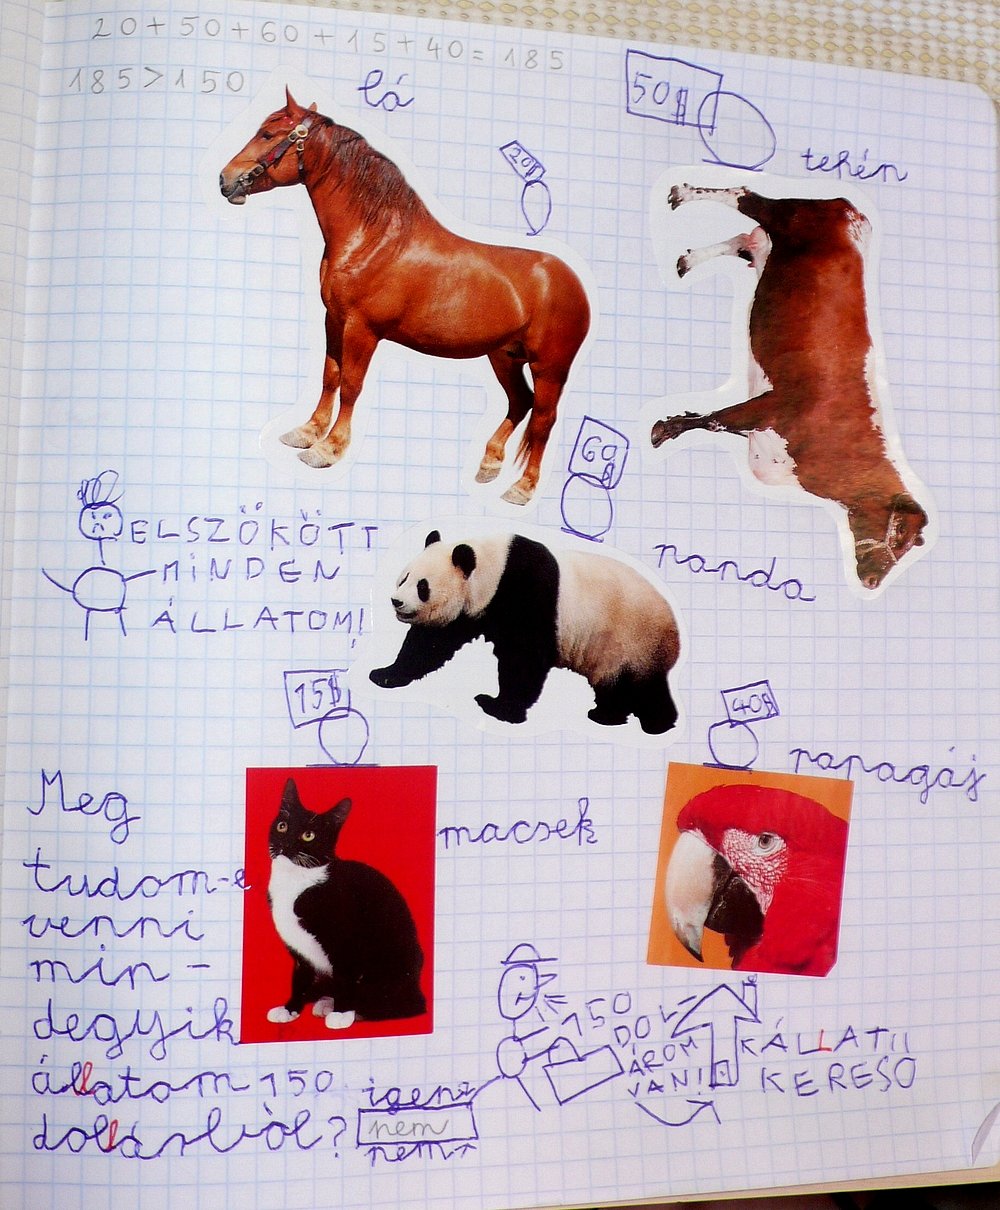 20+50+60+15+40=185
185>150
lá
50$
tehén
20$
60$
ELSZÖKÖTT
MINDEN
ÁLLATOM!
panda
15$
40$
papagáj
macsek
Meg
tudom-e
venni
min-
degyik
állatom 150
dollárból?
igen
nem
nem
150
DOL-
ÁROM
VAN!
ÁLLATI
KERESŐ